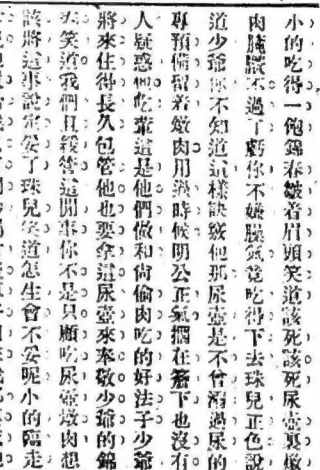 小的吃得一飽錦春皺着眉頭笑道該死該死尿壺裏燉
肉腌臢不過了虧你不嫌臊氣竟吃得下去珠兒正色說
道少爺你不知道這樣訣竅他那尿壺是不曾溺過尿的
專預備留着燉肉用時候明公正氣擱在簷下也沒有
人疑惑他吃葷這是他們做和尙偷肉吃的好法子少爺
將來住得長久包管他也要拿這尿壺來奉敬少爺的錦
春笑道我們且緩管這閒事你不是只顧吃尿壺燉肉想
該將這事說定妥了珠兒笑道怎生會不妥呢小的臨走